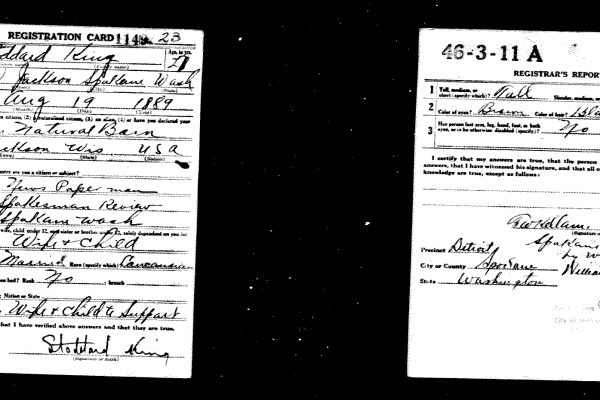 REGISTRATION CARD 1149 No. 23
ddard King
Age, in yrs.
27
Jackson Spokane Wash
Aug 19 1889
(Month) (Day) (Year)
Natural Born
ckson Wis USA
(Town) (State) (Nation)
ntry are you a citizen or subject?
News Paper man
Spokesman Review
Spokane Wash
Wife + Child
Married Race (specify which)? Caucasian
Rank No branch
Nation or State
Wife + Child to Support
that I have verified above answers and that they are true.
Stoddard King
46-3-11 A
REGISTRAR'S REPOR
1 Tall, medium, or short (specify which)? Tall Slender, medium, o
2 Color of eyes? Brown Color of hair? Bla
3 Has person lost arm, leg, hand, foot, or both eyes, or is he otherwise disabled (specify)? No
I certify that my answers are true, that the person
answers, that I have witnessed his signature, and that all o
knowledge are true, except as follows:
(Signature o
Precinct Detroit
Spokane
City or County Spokane
State Washington